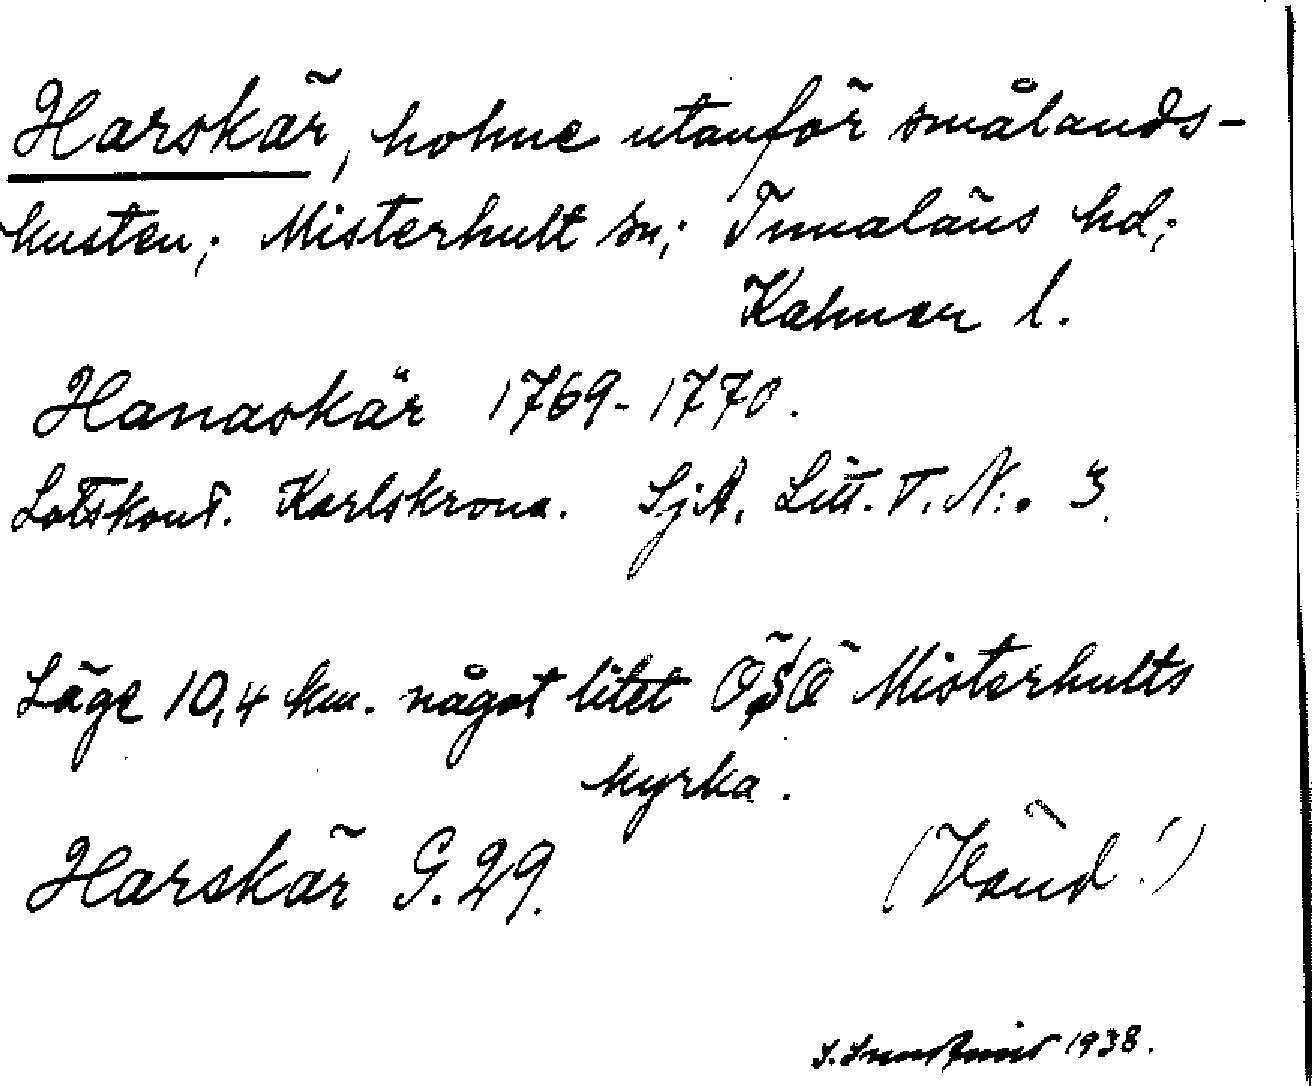 Harskär, holme utanför smålands-
kusten; Misterhult sn; Tunaläns hd;
Kalmar l.
Hanaskär 1769-1770.
Lotskont. Karlskrona. SjA. Litt. T. N:o 3.
Läge 10,4 km. något litet ÖSÖ Misterhults
kyrka.
Harskär G. 29.
(Vänd!)
1938.